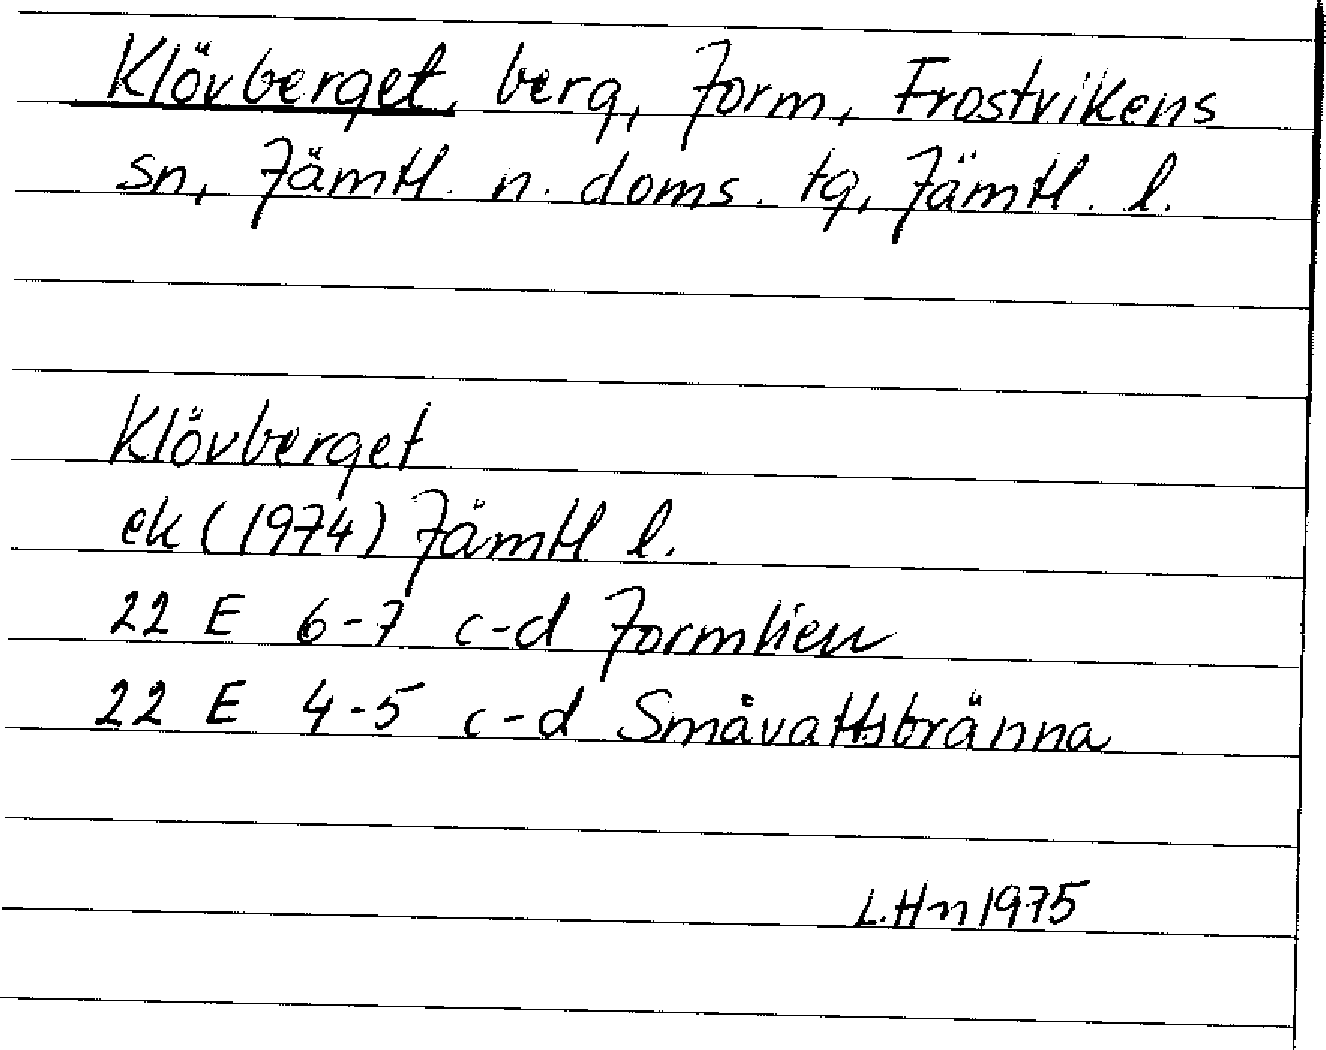 Klövberget, berg, Jorm, Frostvikens
sn, Jämtl. n. doms. tg, Jämtl. l.
Klövberget
ek (1974) Jämtl l.
22 E 6-7 c-d Jormlien
22 E 4-5 c-d Småvattsbränna
L.Hn 1975